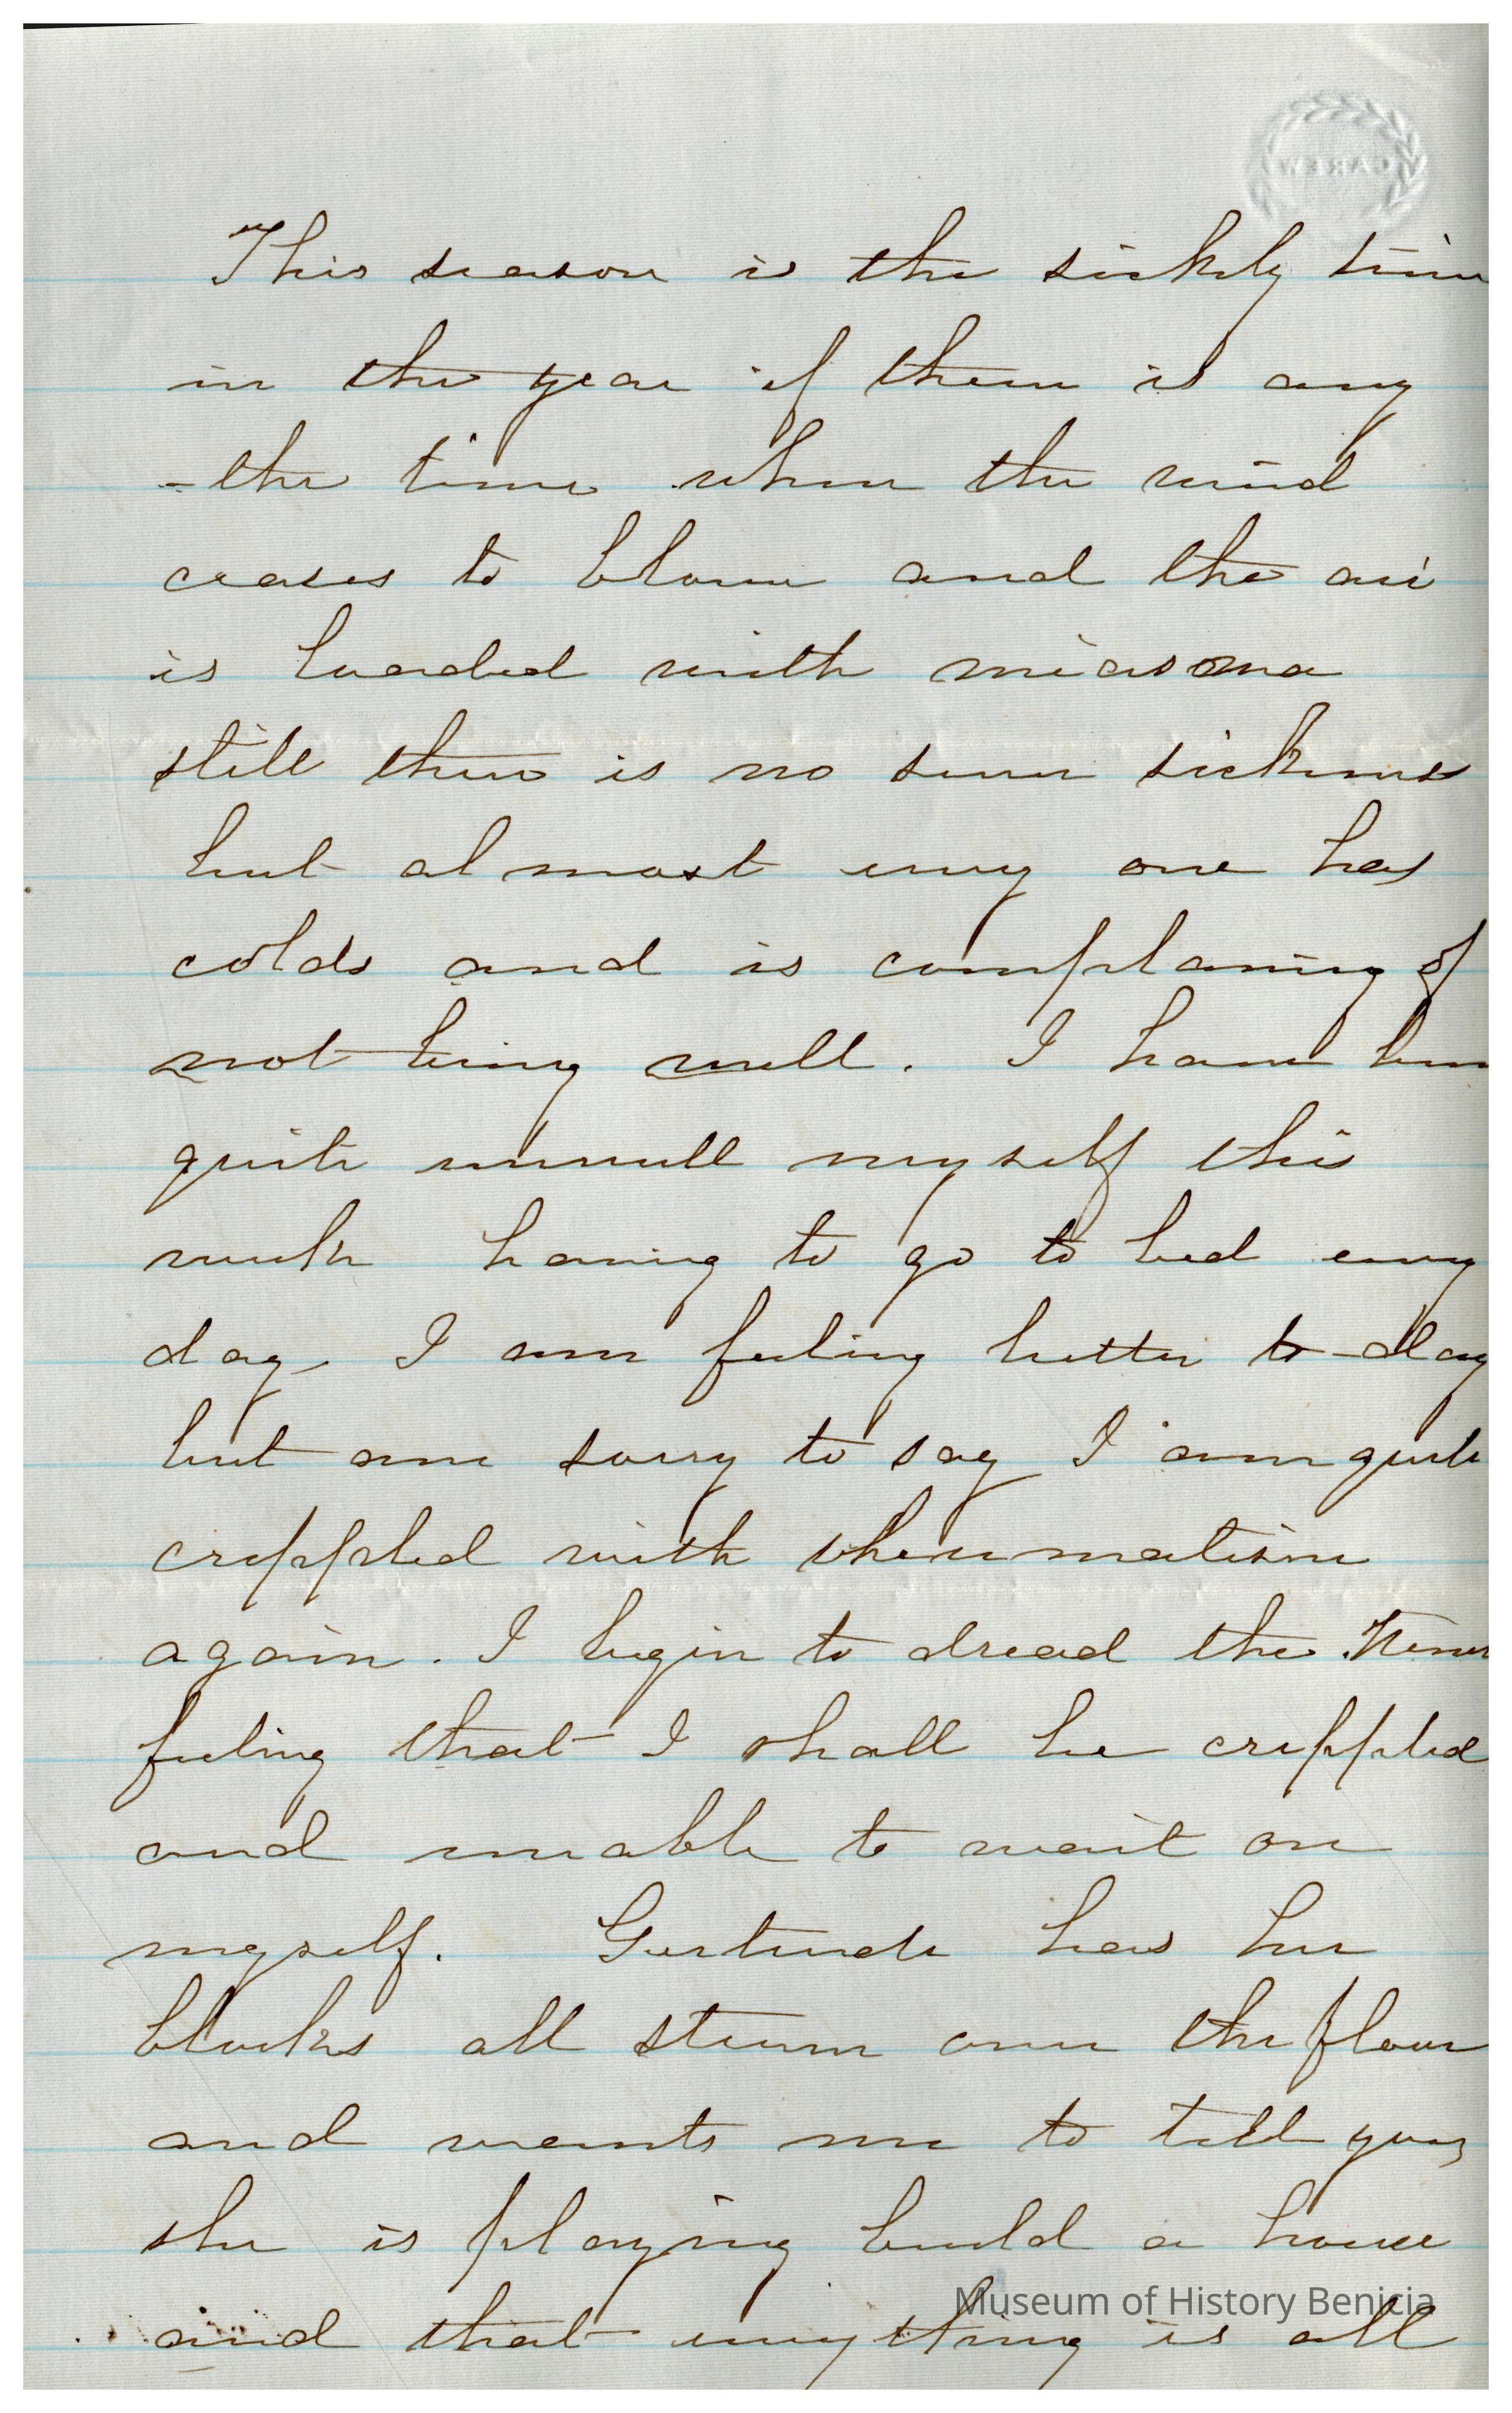 CAREW
This season is the sickly time
in the year if there is any
- the time when the wind
ceases to blow and the air
is loaded with miasma
still there is no sever sickness
but almost every one has
colds and is complaning of
not being well. I have been
quite unwell myself this
week having to go to bed every
day. I am feeling better to-day
but am sorry to say I am quite
crippled with rheumatism
again. I begin to dread the
feeling that I shall be crippled
and unable to wait on
myself. Gertrude has her
blocks all strewn over the floor
and wants me to tell you
she is playing build a house
and that everything is all
Museum of History Benicia